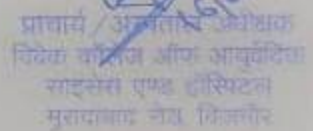 प्राचार्य / अस्पताल अधीक्षक
विवेक कॉलिज ऑफ आयुर्वेदिक
साइंसेस एण्ड हॉस्पिटल
मुरादाबाद रोड बिजनौर